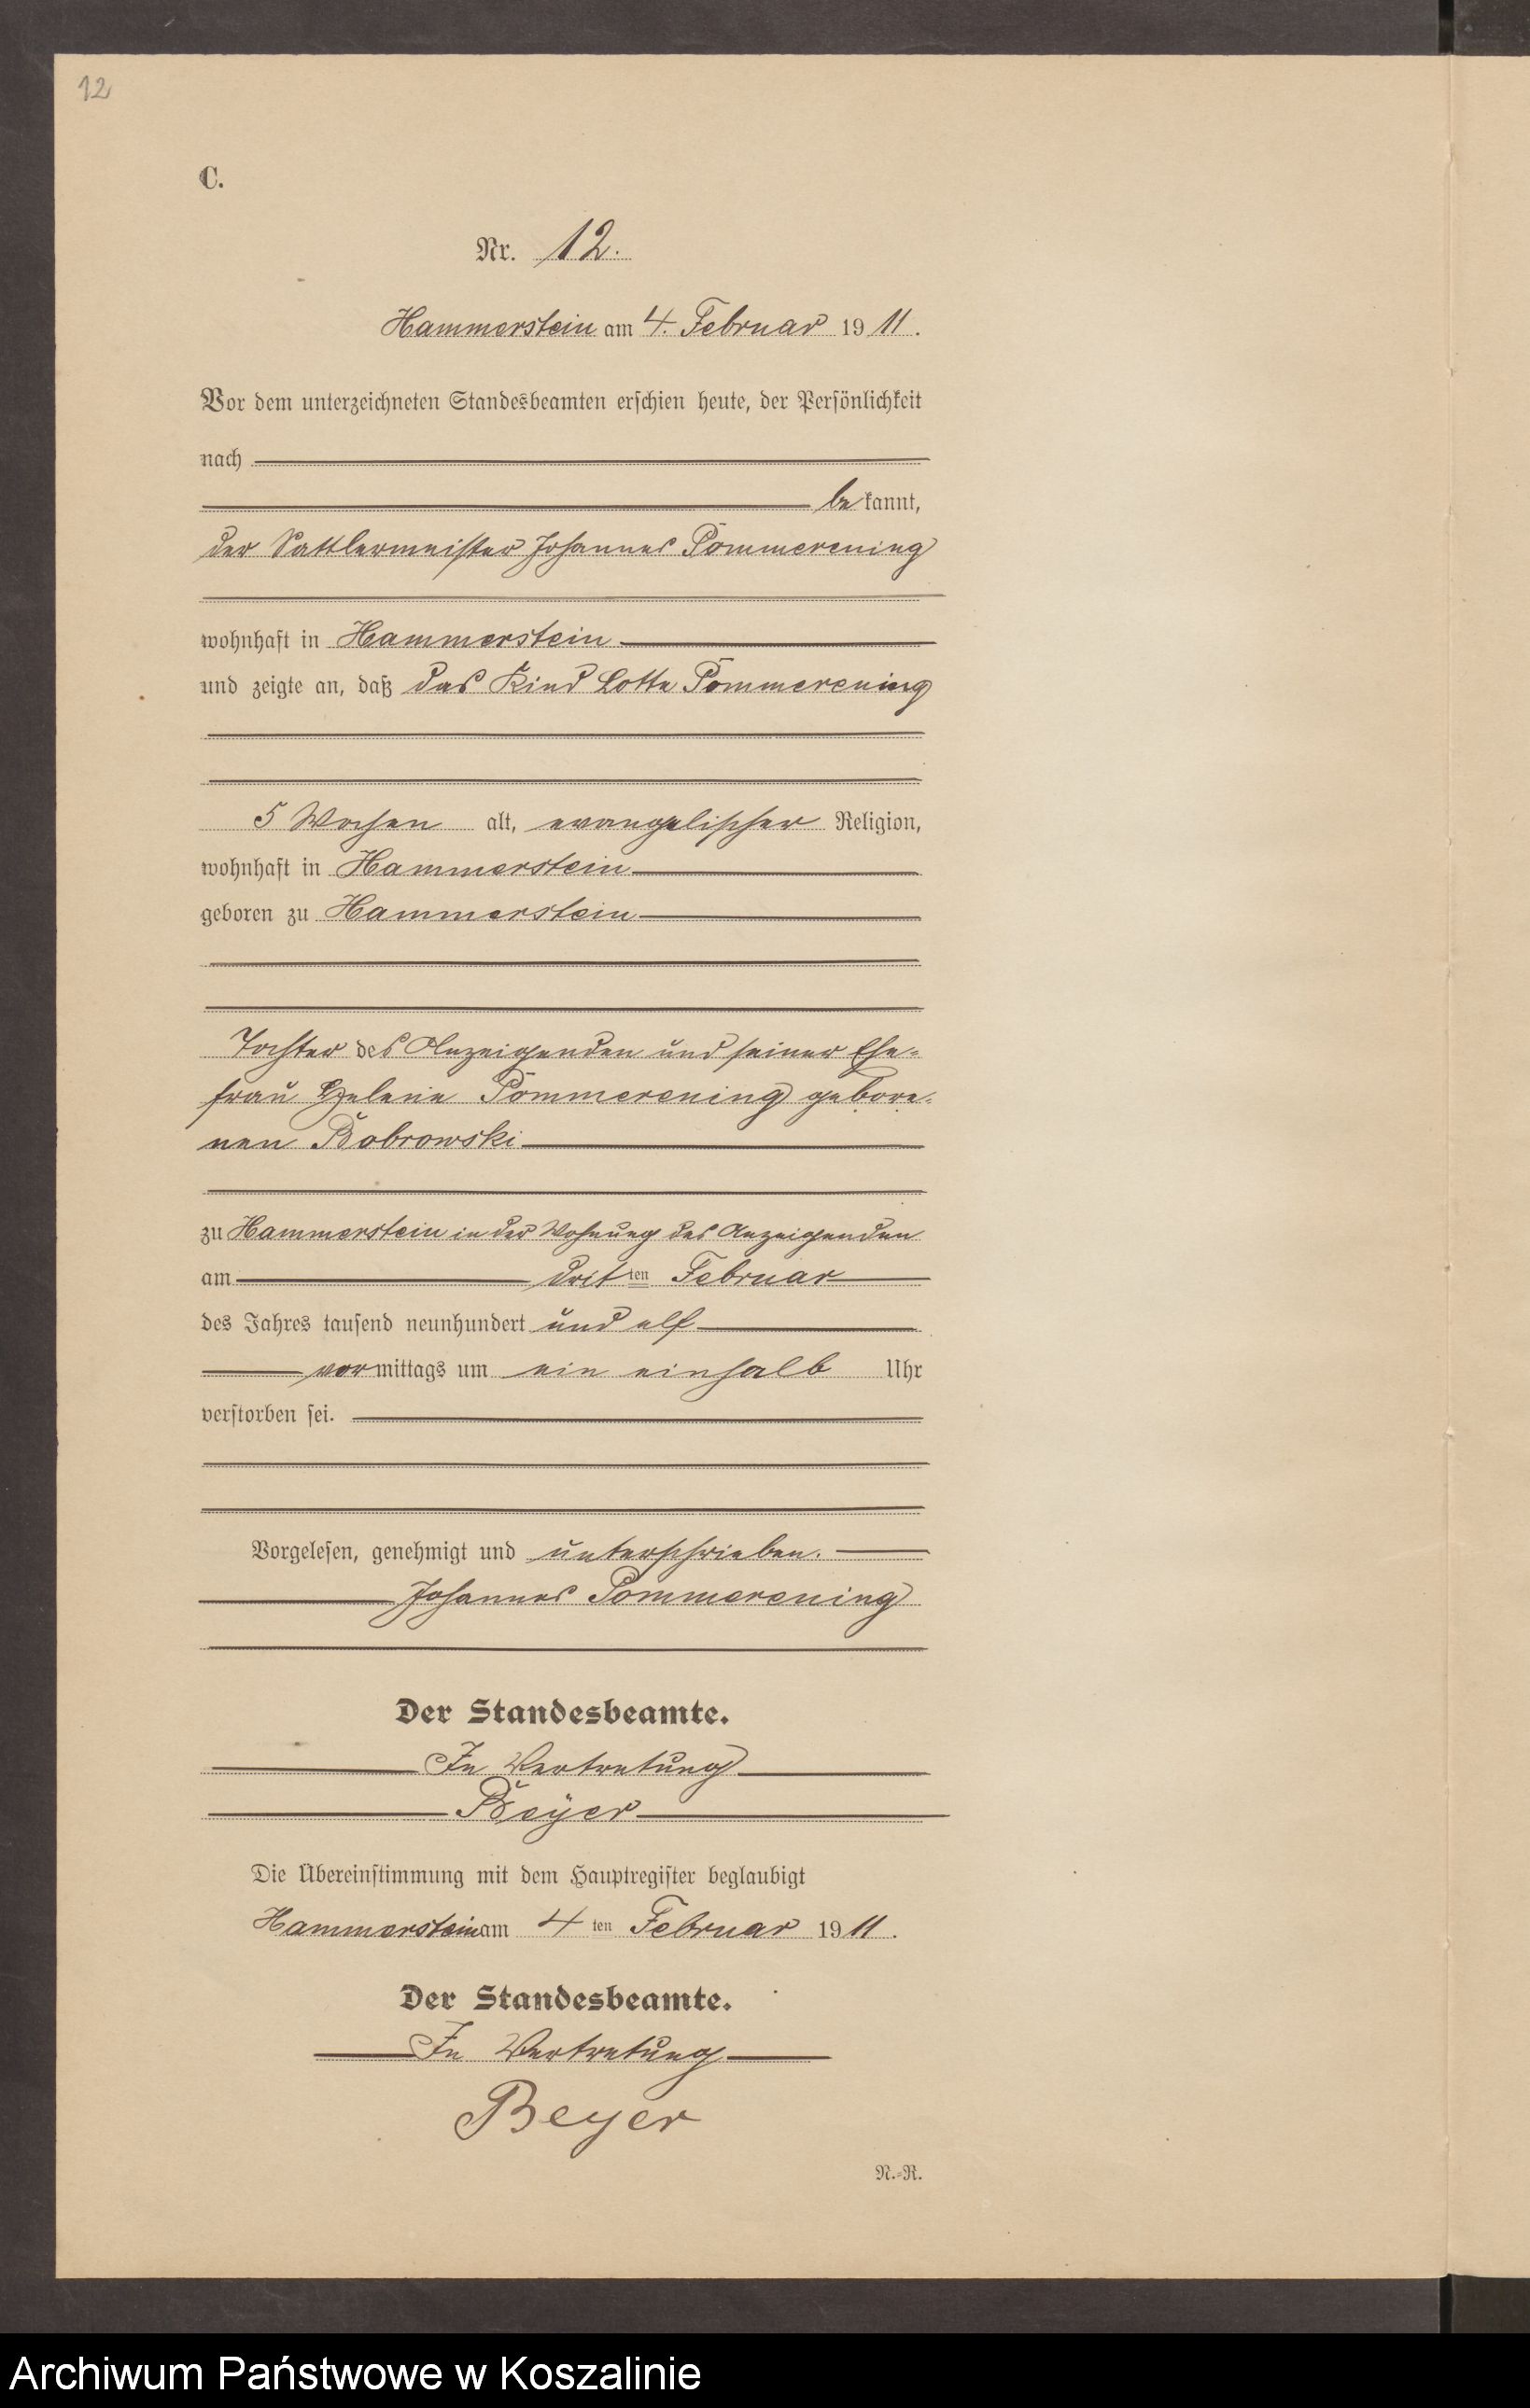 12
C.
Nr. 12.
Hammerstein am 4. Februar 1911.
Vor dem unterzeichneten Standesbeamten erschien heute, der Persönlichkeit
nach
bekannt,
der Sattlermeister Johannes Pommerening
wohnhaft in Hammerstein
und zeigte an, daß das Kind Lotte Pommerening
5 Wochen alt, evangelischer Religion,
wohnhaft in Hammerstein
geboren zu Hammerstein
Tochter des Anzeigenden und seiner Ehe-
frau Helene Pommerening gebore-
nen Bobrowski
zu Hammerstein in der Wohnung des Anzeigenden
am dritten Februar
des Jahres tausend neunhundert und elf
vormittags um ein einhalb Uhr
verstorben sei.
Vorgelesen, genehmigt und unterschrieben.
Johannes Pommerening
Der Standesbeamte.
In Vertretung
Beyer
Die Übereinstimmung mit dem Hauptregister beglaubigt
Hammerstein am 4ten Februar 1911.
Der Standesbeamte.
In Vertretung
Beyer
N.-R.
Archiwum Państwowe w Koszalinie